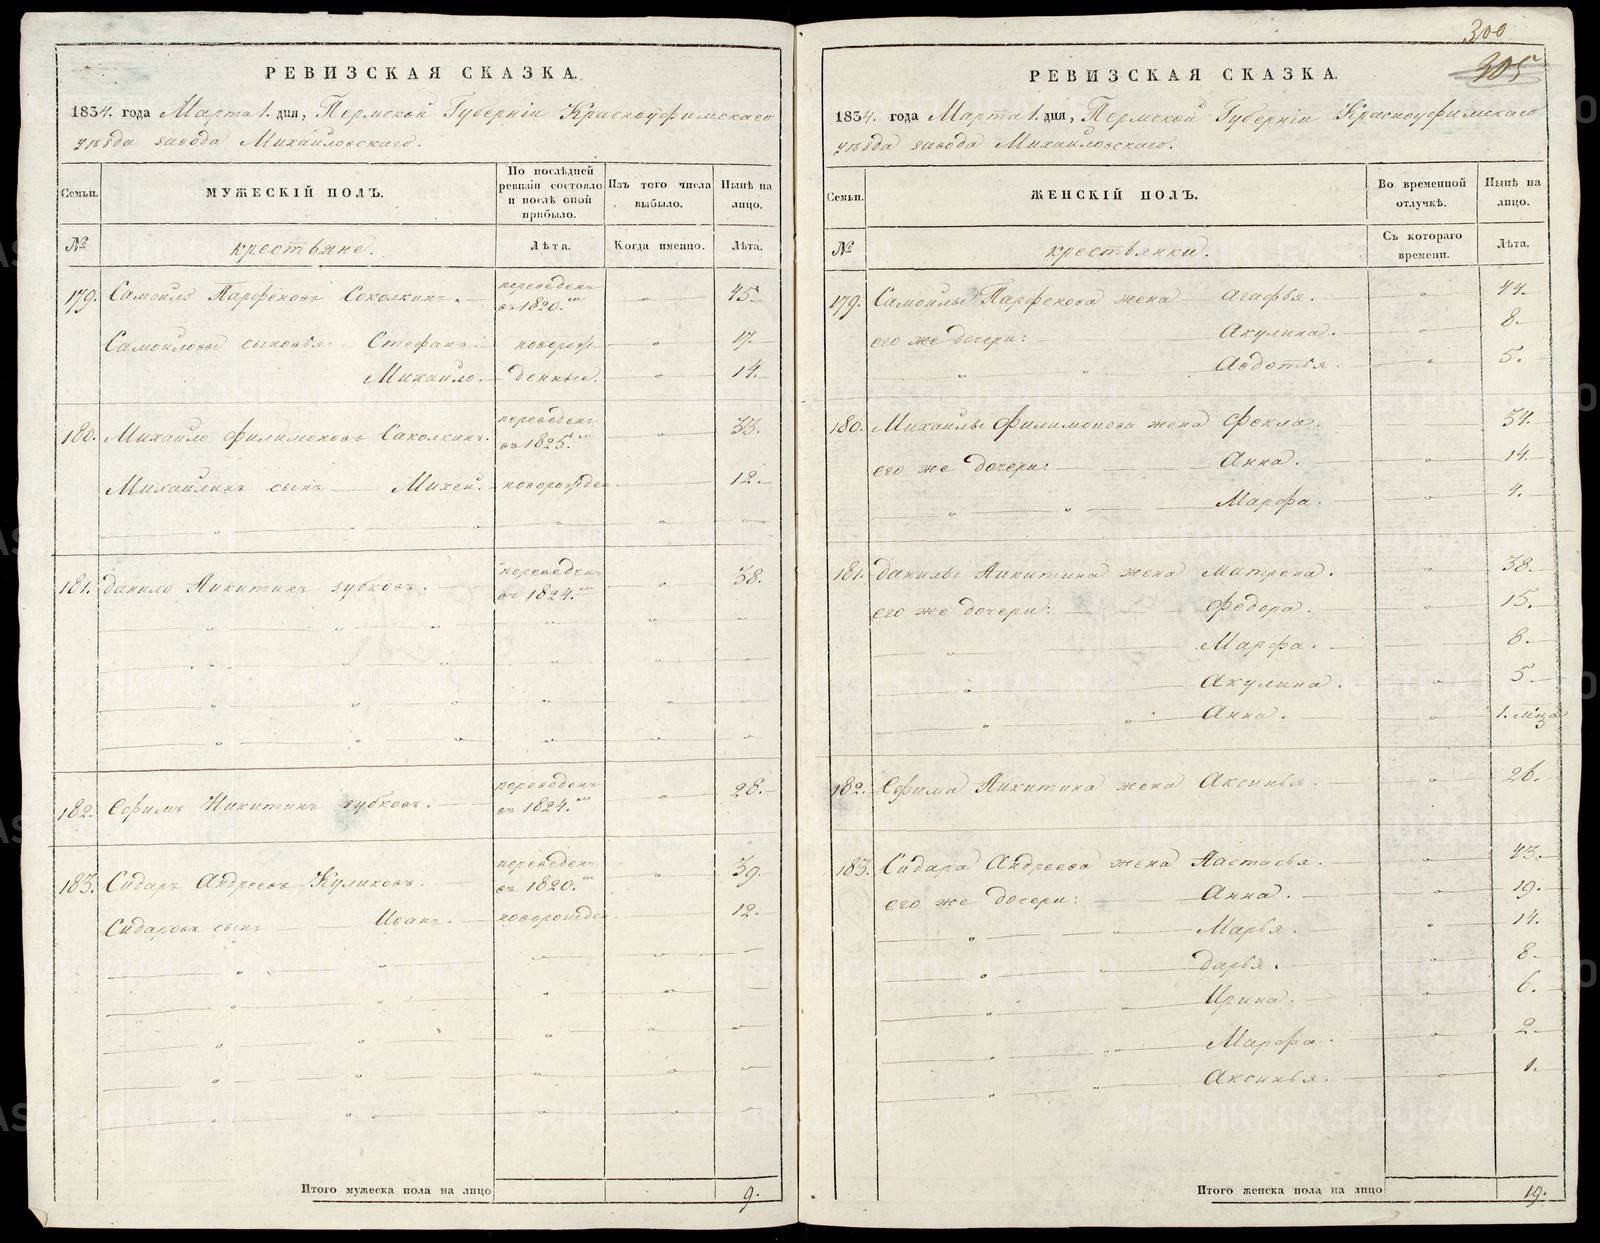 300
305
РЕВИЗСКАЯ СКАЗКА.
1834. года Марта 1. дня, Пермской Губерніи Красноуфимскаго
уѣзда завода Михайловскаго.
Семьи.
МУЖЕСКІЙ ПОЛЪ.
По послѣдней ревизіи состояло и послѣ оной прибыло.
Изъ того числа выбыло.
Нынѣ на лицо.
№ крестьяне. Лѣта. Когда именно. Лѣта.
179. Самойло Парфеновъ Соколкинъ. переведенъ въ 1820.мъ 45.
Самойловы сыновья: Стефанъ. новорож 17.
Михайло. денные. 14.
180. Михайло Филимоновъ Саколкинъ. переведенъ въ 1825.мъ 33.
Михайлинъ сынъ Михей. новорожден. 12.
181. Данило Никитинъ Зубковъ. переведенъ въ 1824.мъ 38.
182. Ефимъ Никитинъ Зубковъ. переведенъ въ 1824.мъ 28.
183. Сидаръ Андреевъ Куликовъ. переведенъ въ 1820.мъ 39.
Сидаровъ сынъ Иванъ. новорожден. 12.
Итого мужеска пола на лицо 9.
РЕВИЗСКАЯ СКАЗКА.
1834. года Марта 1. дня, Пермской Губерніи Красноуфимскаго
уѣзда завода Михайловскаго.
Семьи.
ЖЕНСКІЙ ПОЛЪ.
Во временной отлучкѣ.
Нынѣ на лицо.
№ крестьянки. Съ котораго времени. Лѣта.
179. Самойлы Парфенова жена Агафья. 44.
его же дочери: Акулина. 8.
Авдотья. 5.
180. Михайлы Филимонова жена Фекла. 34.
его же дочери: Анна. 14.
Марфа. 4.
181. Данилы Никитина жена Матрена. 38.
его же дочери: Федора. 15.
Марфа. 8.
Акулина. 5.
Анна. 1. мѣца
182. Ефима Никитина жена Аксинья. 26.
183. Сидара Андреева жена Настасья. 43.
его же дочери: Анна. 19.
Марья. 14.
Дарья. 8.
Ирина. 6.
Марфа. 2.
Аксинья. 1.
METRIKI.GASO-URAL.RU
Итого женска пола на лицо 19.